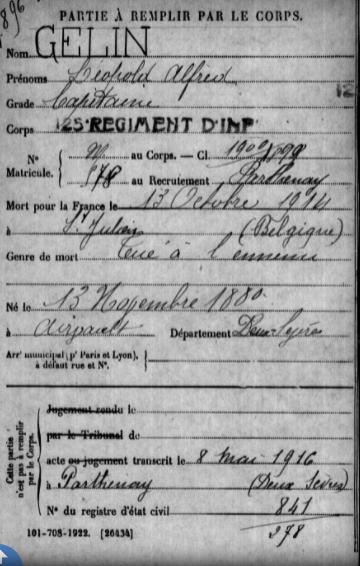 PARTIE À REMPLIR PAR LE CORPS.
Nom GELIN
Prénoms Léopold Alfred
Grade Capitaine
Corps 125 REGIMENT D'INF
N° au Corps. — Cl. 1900
Matricule. 978 au Recrutement Parthenay
Mort pour la France le 13 Octobre 1914
à St Julien (Belgique)
Genre de mort Tué à l'ennemi
Né le 13 Novembre 1880
à Airvault Département Deux-Sèvres
Arrt municipal (pr Paris et Lyon),
à défaut rue et N°.
Cette partie
n'est pas à remplir
par le Corps.
Jugement rendu le
par le Tribunal de
acte ou jugement transcrit le 8 mai 1916
à Parthenay (Deux Sèvres)
N° du registre d'état civil 841
101-708-1922. [26434] 978